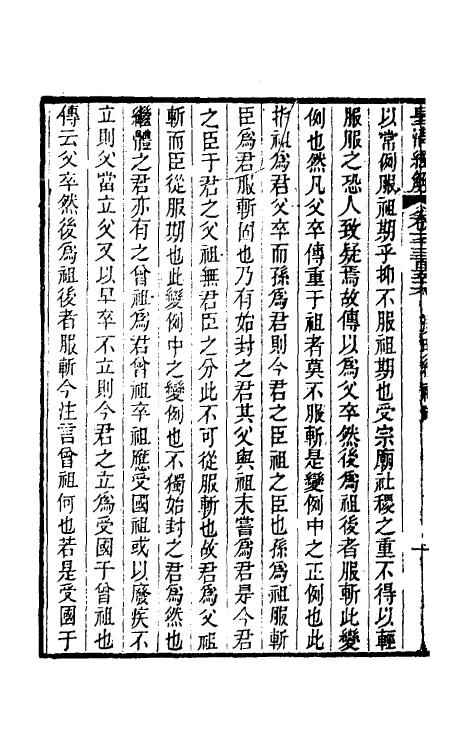 皇清經解
以常例服祖期乎抑不服祖期也受宗廟社稷之重不得以輕
服服之恐人致疑焉故傳以爲父卒然後爲祖後者服斬此變
例也然凡父卒傳重于祖者莫不服斬是變例中之正例也此
指祖爲君父卒而孫爲君則今君之臣祖之臣也孫爲祖服斬
臣爲君服斬固也乃有始封之君其父與祖未嘗爲君是今君
之臣于君之父祖無君臣之分此不可從服斬也故君爲父祖
斬而臣從服期也此變例中之變例也不獨始封之君爲然也
繼體之君亦有之曾祖爲君曾祖卒祖應受國祖或以廢疾不
立則父當立父又以早卒不立則今君之立爲受國于曾祖也
傳云父卒然後爲祖後者服斬今注言曾祖何也若是受國于